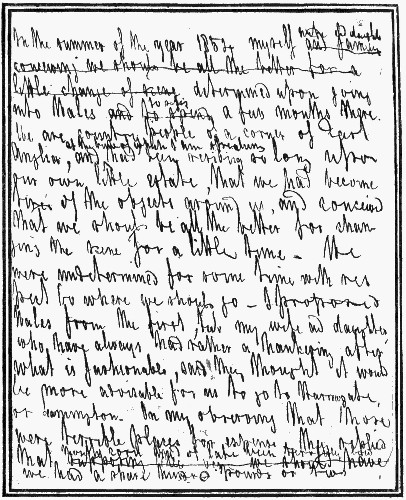 wife & daughter
In the summer of the year 1854 myself and family
conceiving we should be all the better for a
little change of scene determined upon going
to pass
into Wales and to spend a few months there.
We are country people of a corner of East
at the time of which I am speaking
Anglia, and had been residing so long upon
our own little estate, that we had become
tired of the objects around us, and conceived
that we should be all the better for chan-
ging the scene for a little time - We
were undetermined for some time with res
pect to where we should go - I proposed
Wales from the first, but my wife and daughter
who have always had rather a hankering after
what is fashionable, said they thought it would
be more advisable for us to go to Harrogate,
or Leamington. On my observing that those
were terrible places for expense they replied
that though corn had of late been
we should have
we had a spare hundred pounds or two